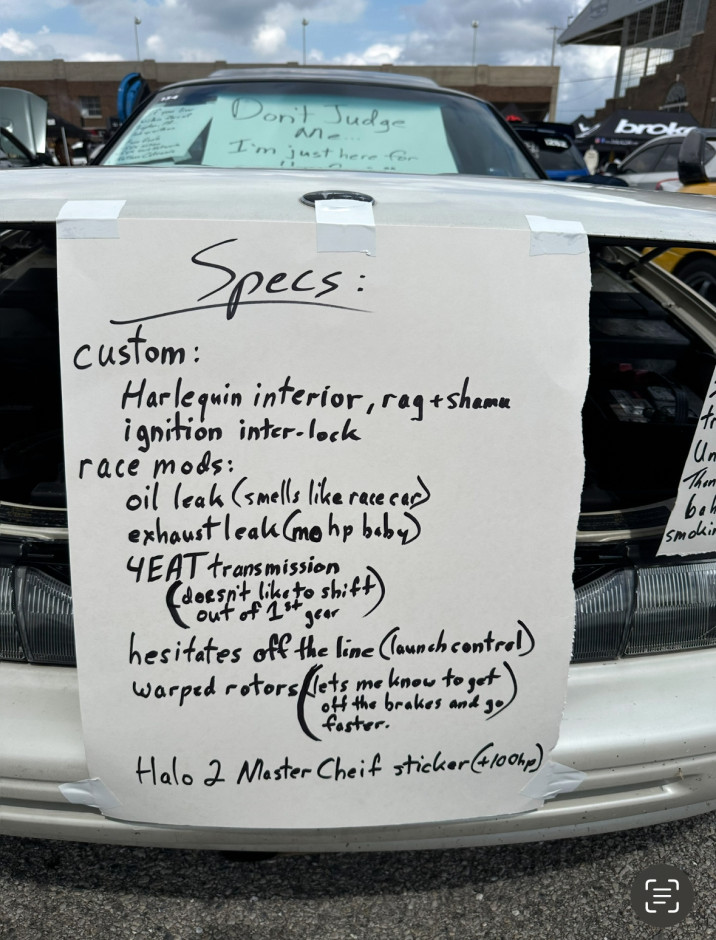 Don't Judge
Me...
I'm just here for
brok
Specs:
custom:
Harlequin interior, rag + shamu
ignition inter-lock
race mods:
oil leak (smells like race car)
exhaust leak (mo hp baby)
4EAT transmission
(doesn't like to shift
out of 1st gear)
hesitates off the line (launch control)
warped rotors (lets me know to get
off the brakes and go
faster.)
Halo 2 Master Cheif sticker (+100hp)
Un
smokin